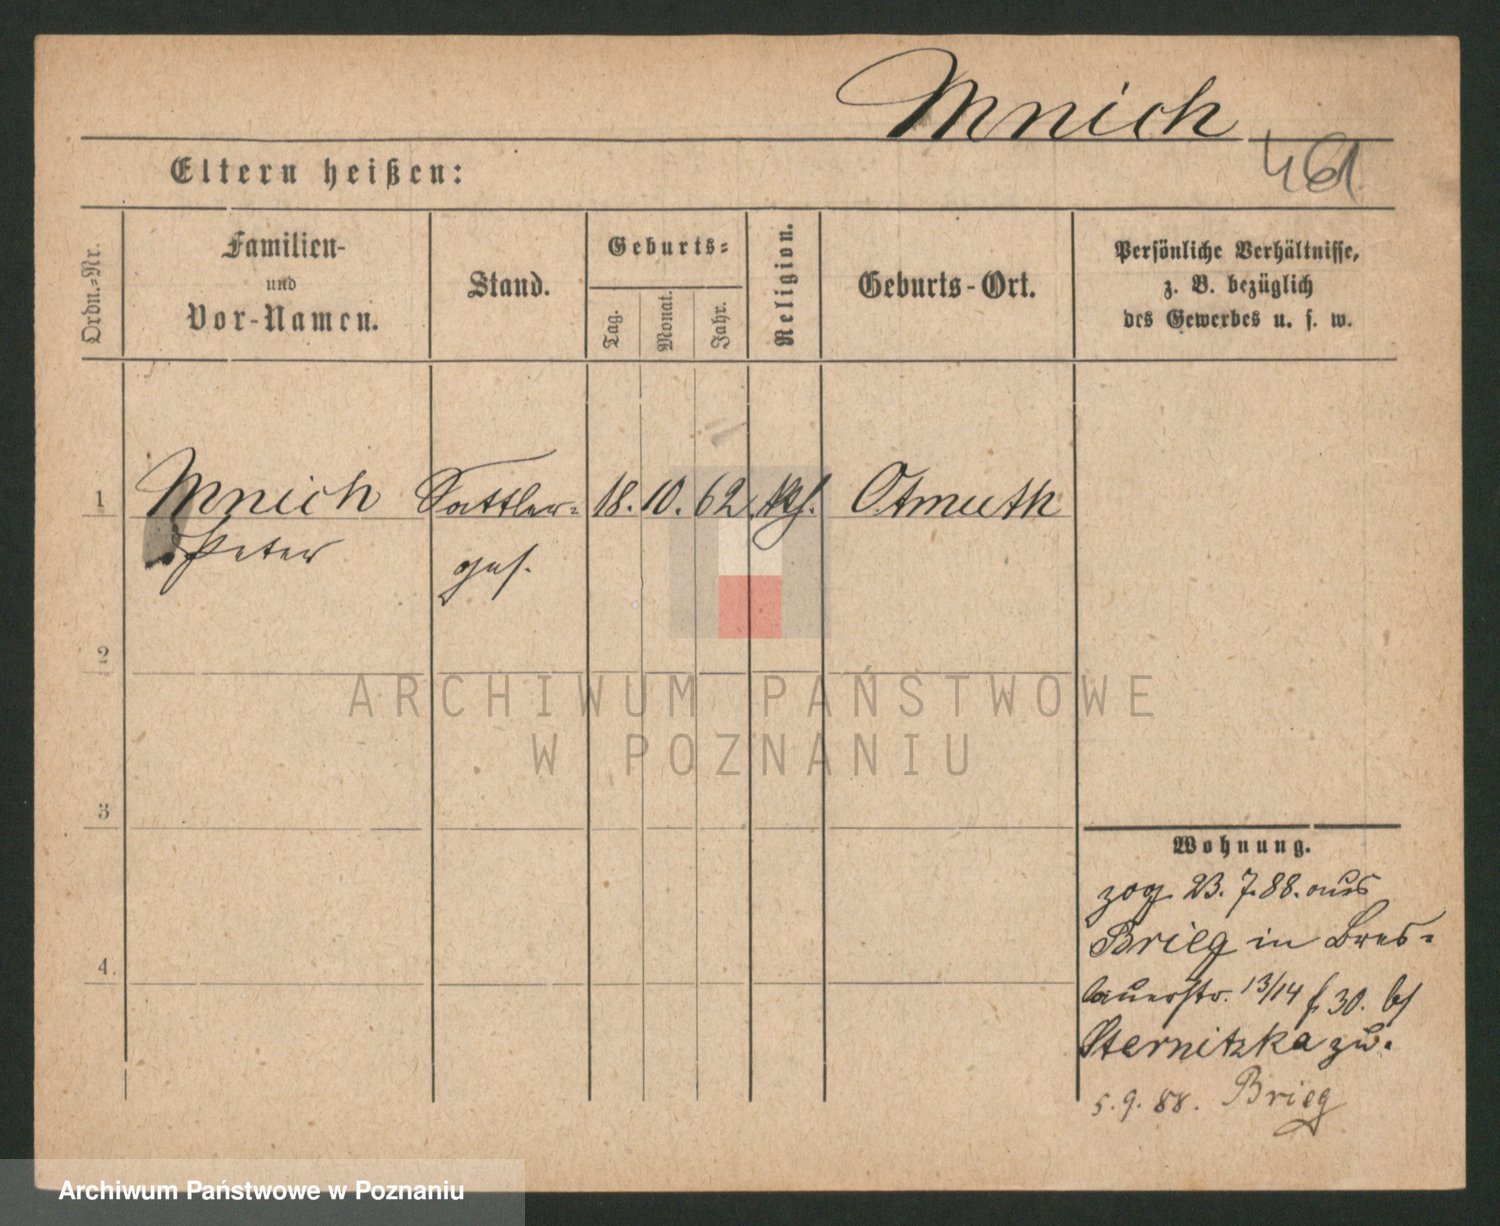 Mnich
461
Eltern heißen:
Ordn.-Nr.
Familien-
und
Vor-Namen.
Stand.
Geburts-
Tag.
Monat.
Jahr.
Religion.
Geburts-Ort.
Persönliche Verhältnisse,
z. B. bezüglich
des Gewerbes u. s. w.
1 Mnich Sattler- 18. 10. 62. kth. Otmuth
Peter ges.
2
3
4.
Wohnung.
zog 23. 7. 88. aus
Brieg in Bres-
lauerstr. 13/14 f. 30. bei
Sternitzka zu.
5. 9. 88. Brieg
ARCHIWUM PAŃSTWOWE
W POZNANIU
Archiwum Państwowe w Poznaniu